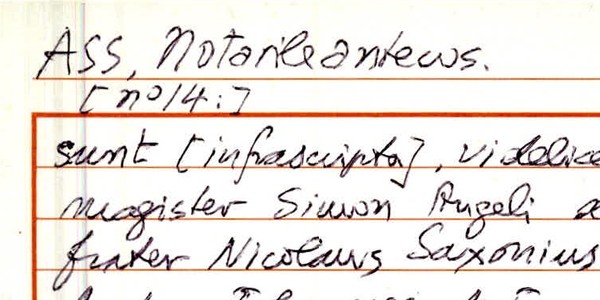 ASS, Notarile antecos.
[n° 14:]
sunt [infrascripta], videlice
magister Simon Angeli
frater Nicolaus Saxonius